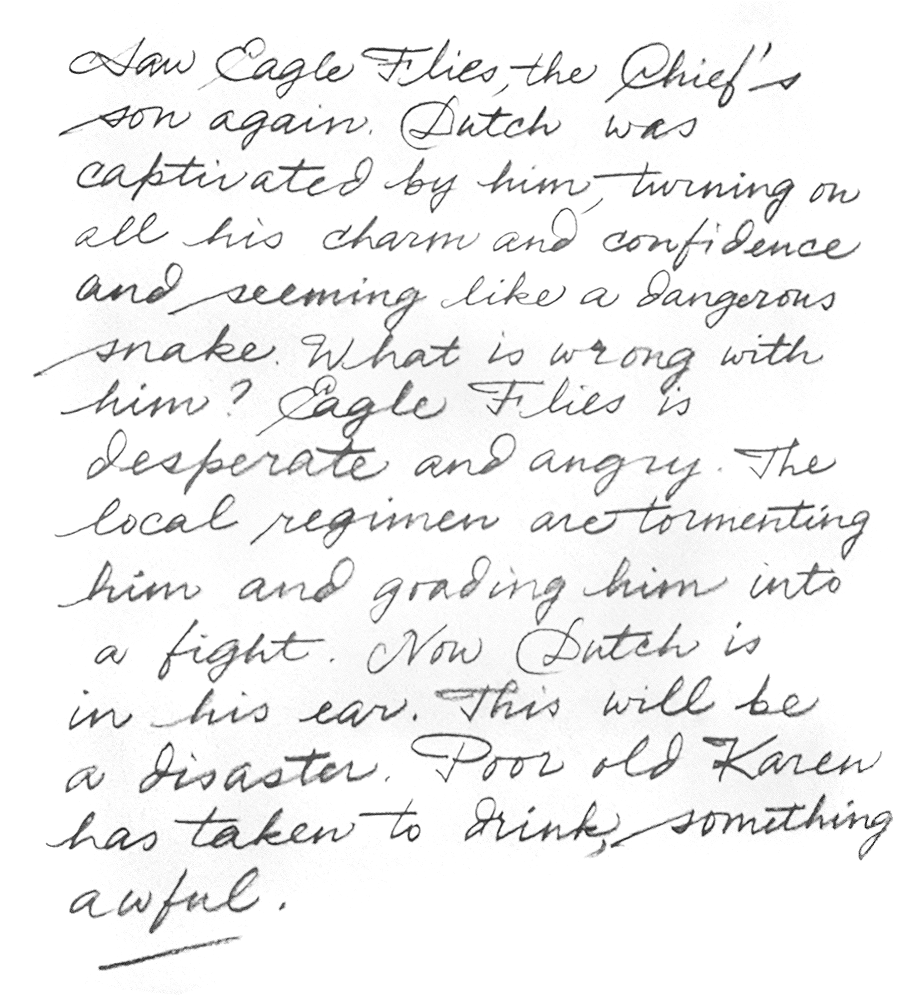 Saw Eagle Flies, the Chief's
son again. Dutch was
captivated by him, turning on
all his charm and confidence
and seeming like a dangerous
snake. What is wrong with
him? Eagle Flies is
desperate and angry. The
local regimen are tormenting
him and goading him into
a fight. Now Dutch is
in his ear. This will be
a disaster. Poor old Karen
has taken to drink, something
awful.